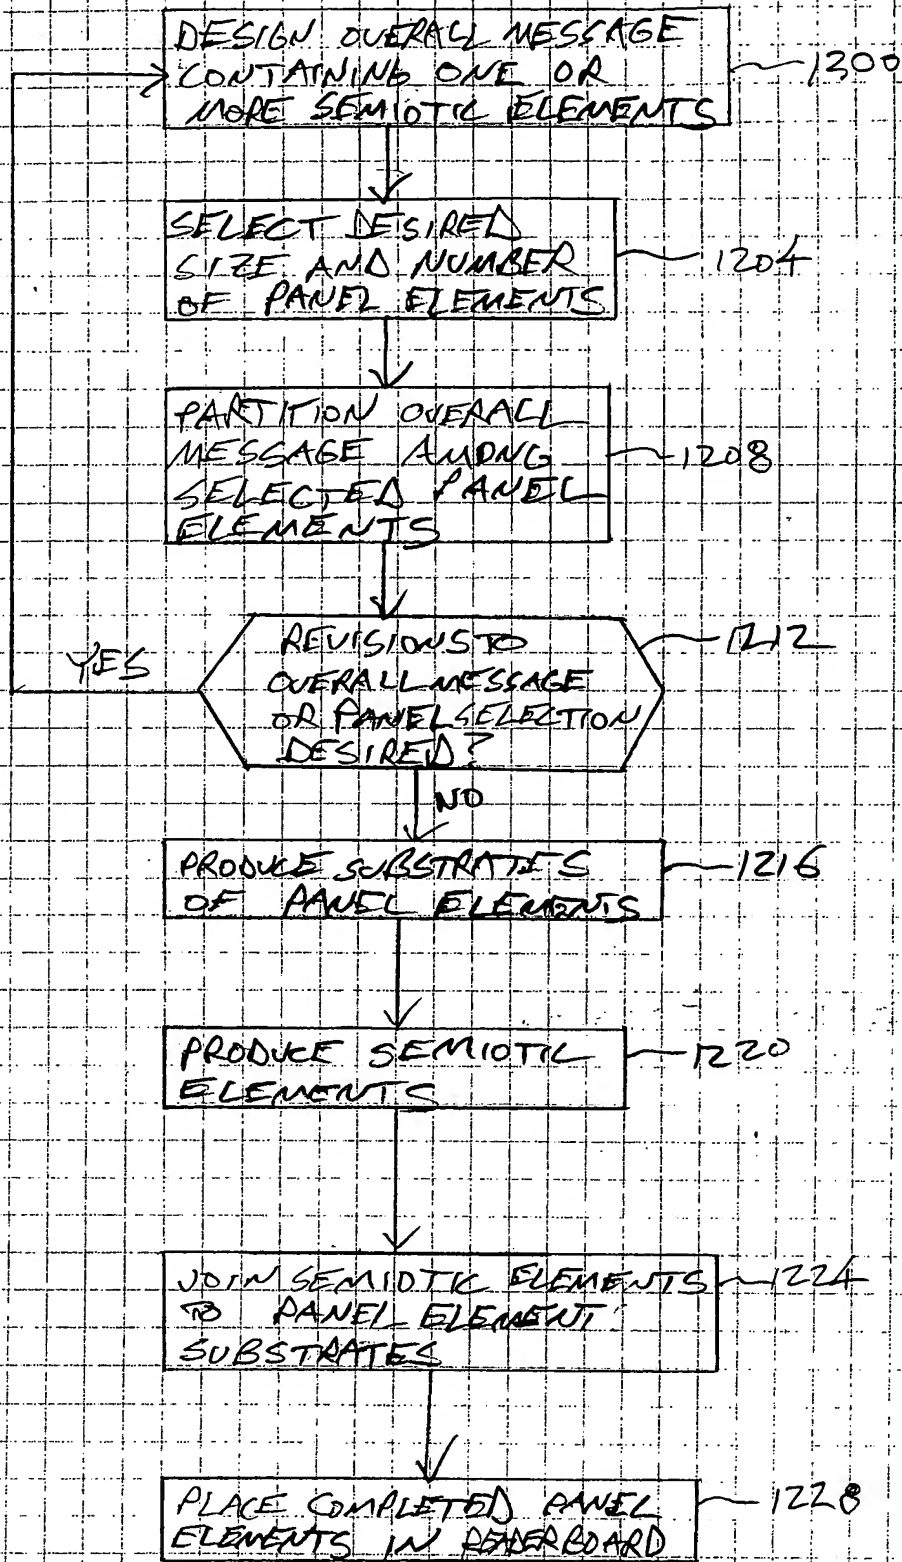 DESIGN OVERALL MESSAGE
CONTAINING ONE OR
MORE SEMIOTIC ELEMENTS
1200
SELECT DESIRED
SIZE AND NUMBER
OF PANEL ELEMENTS
1204
PARTITION OVERALL
MESSAGE AMONG
SELECTED PANEL
ELEMENTS
1208
REVISIONS TO
OVERALL MESSAGE
OR PANEL SELECTION
DESIRED?
1212
YES
NO
PRODUCE SUBSTRATES
OF PANEL ELEMENTS
1216
PRODUCE SEMIOTIC
ELEMENTS
1220
JOIN SEMIOTIC ELEMENTS
TO PANEL ELEMENT
SUBSTRATES
1224
PLACE COMPLETED PANEL
ELEMENTS IN READERBOARD
1228